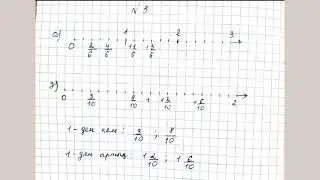 № 5
а) 0 2/6 4/6 1 1 1/6 1 3/6 2 3
ә) 0 3/10 8/10 1 1 2/10 1 6/10 2
1-ден кем: 3/10 ; 8/10
1-ден артық 1 2/10 , 1 6/10